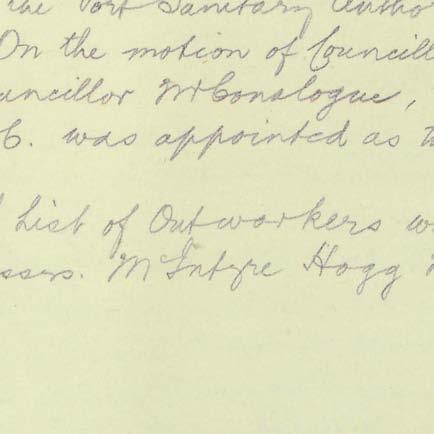 the Port Sanitary Autho
On the motion of Councill
uncillor McConalogue,
C. was appointed as t
List of Outworkers w
ssrs. McIntyre Hogg